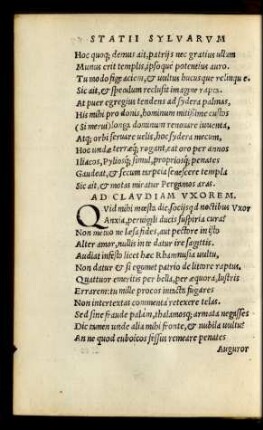 STATII SYLVARVM
Hoc quoq; demus ait, patrijs nec gratius ullum
Munus erit templis, ipsoq̃ue potentius auro.
Tu modo fige aciem, & uultus hucusque relinque.
Sic ait, & speculum reclusit imagine rapta.
At puer egregius tendens ad sydera palmas,
His mihi pro donis, hominum mitissime custos
(Si merui) longa dominum renouare iuuenta,
Atq; orbi seruare uelis, hoc sydera mecum,
Hoc undæ terræq̃; rogant, eat oro per annos
Iliacos, Pyliosq̃; simul, propriosq̃; penates
Gaudeat, & secum tarpeia senescere templa
Sic ait, & motas miratur Pergamos aras.
AD CLAVDIAM VXOREM.
QVid mihi mœsta die, socijsq̃ noctibus Vxor
Anxia, peruigili ducis suspiria cura?
Non metuo ne læsa fides, aut pectore in isto
Alter amor, nullis in te datur ire sagittis.
Audiat infesto licet hæc Rhamnusia uultu,
Non datur & si egomet patrio de litore raptus.
Quattuor emeritis per bella, per æquora, lustris
Errarem: tu mille procos inuicta fugares
Non intertextas commenta retexere telas.
Sed sine fraude palàm, thalamosq; armata negasses
Dic tamen unde alia mihi fronte, & nubila uultu?
An ne quod euboicos fissus remeare penates
Auguror